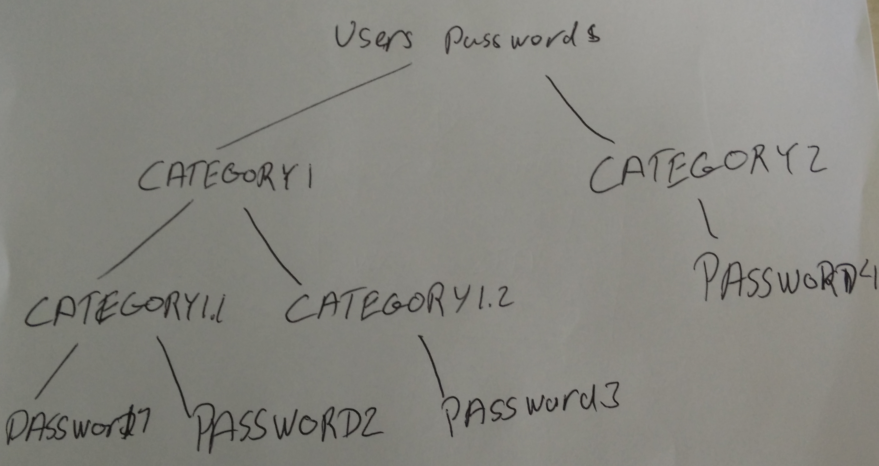 Users Passwords
CATEGORY1 CATEGORY2
PASSWORD4
CATEGORY1.1 CATEGORY1.2
PASSword1 PASSWORD2 PASSword3